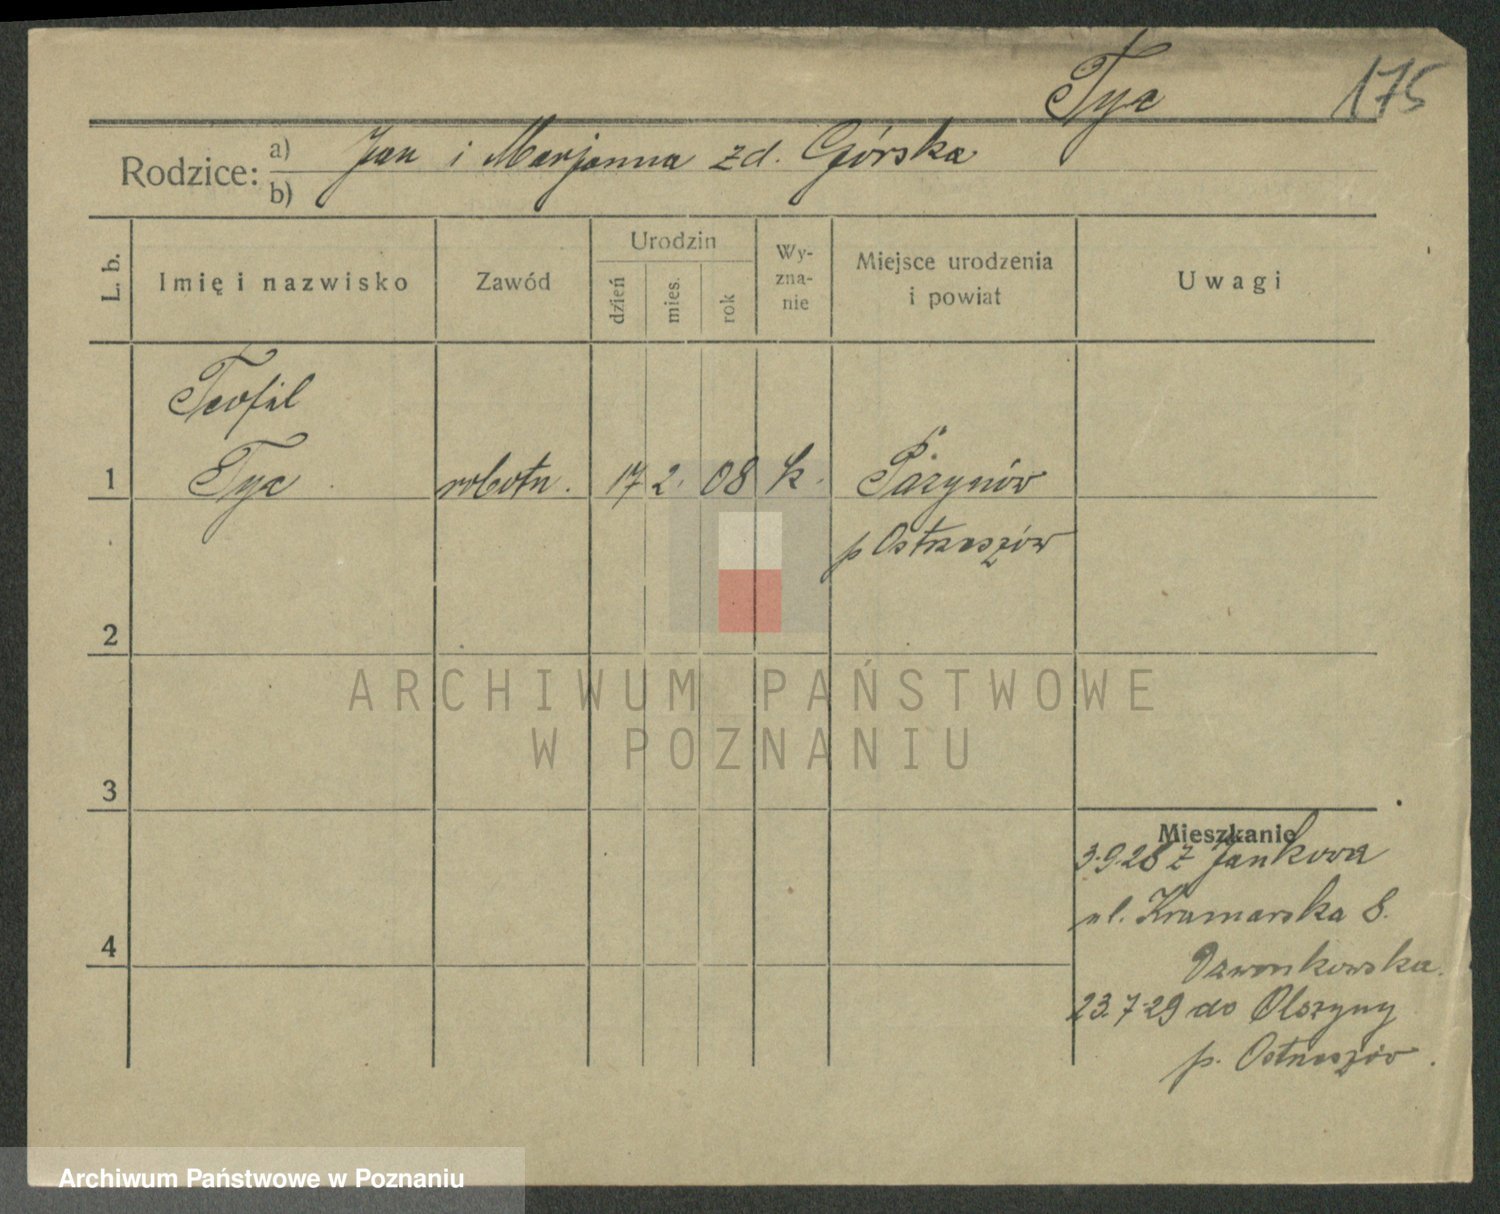 Tyc 175
Rodzice: a) Jan i Marjanna zd. Górska
b)
L. b.
Imię i nazwisko
Zawód
Urodzin
dzień
mies.
rok
Wy-
zna-
nie
Miejsce urodzenia
i powiat
Uwagi
Teofil
1 Tyc robotn. 17 2. 08 k. Parzynów
p Ostrzeszów
2
3
4
Mieszkanie
3.9.28 z Jankowa
ul. Kramarska 8.
Dzwonkowska.
23.7.29 do Olszyny
p. Ostrzeszów.
ARCHIWUM PAŃSTWOWE
W POZNANIU
Archiwum Państwowe w Poznaniu